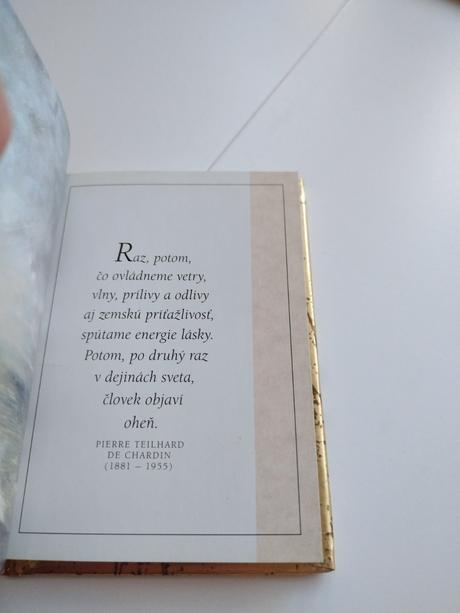 Raz, potom,
čo ovládneme vetry,
vlny, prílivy a odlivy
aj zemskú príťažlivosť,
spútame energie lásky.
Potom, po druhý raz
v dejinách sveta,
človek objaví
oheň.
PIERRE TEILHARD
DE CHARDIN
(1881 – 1955)